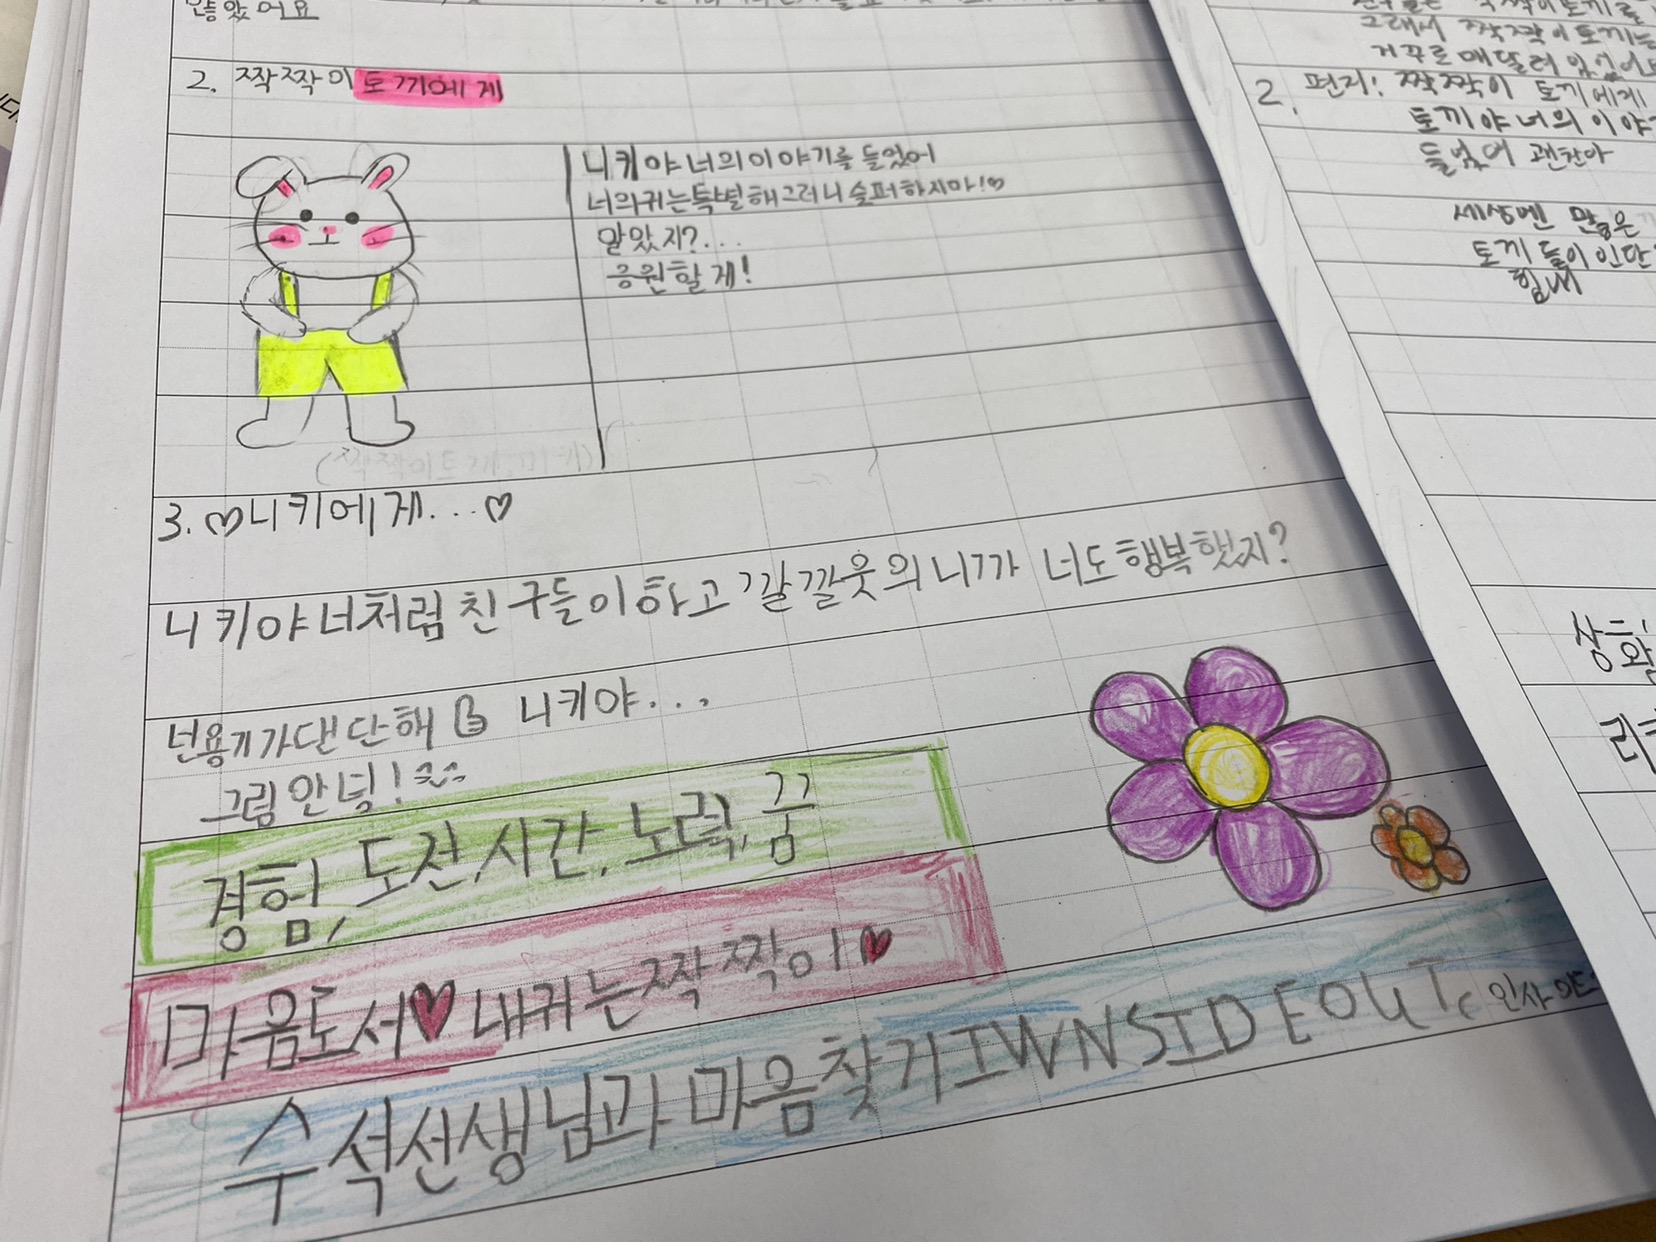 않았어요
2. 짝짝이 토끼에게
니키야 너의 이야기를 들었어
너의 귀는 특별해 그러니 슬퍼하지마!♡
알았지?...
응원할게!
3. ♡니키에게...♡
니키야 너처럼 친구들이하고 깔깔웃의니까 너도 행복했지?
넌용기가댄단해 니키야...
그림안녕!
경험, 도전, 시간, 노력, 꿈
마음도서♥내귀는짝짝이♥
수석선생님과 마음찾기 IWNSIDEOUT 인사이드
그래서 짝짝이토끼는
거꾸로 매달려 있었어
2. 편지: 짝짝이 토끼에게
토끼야 너의 이야
들었어 괜찬아
세상엔 많은
토끼들이 인단
힘내
상황